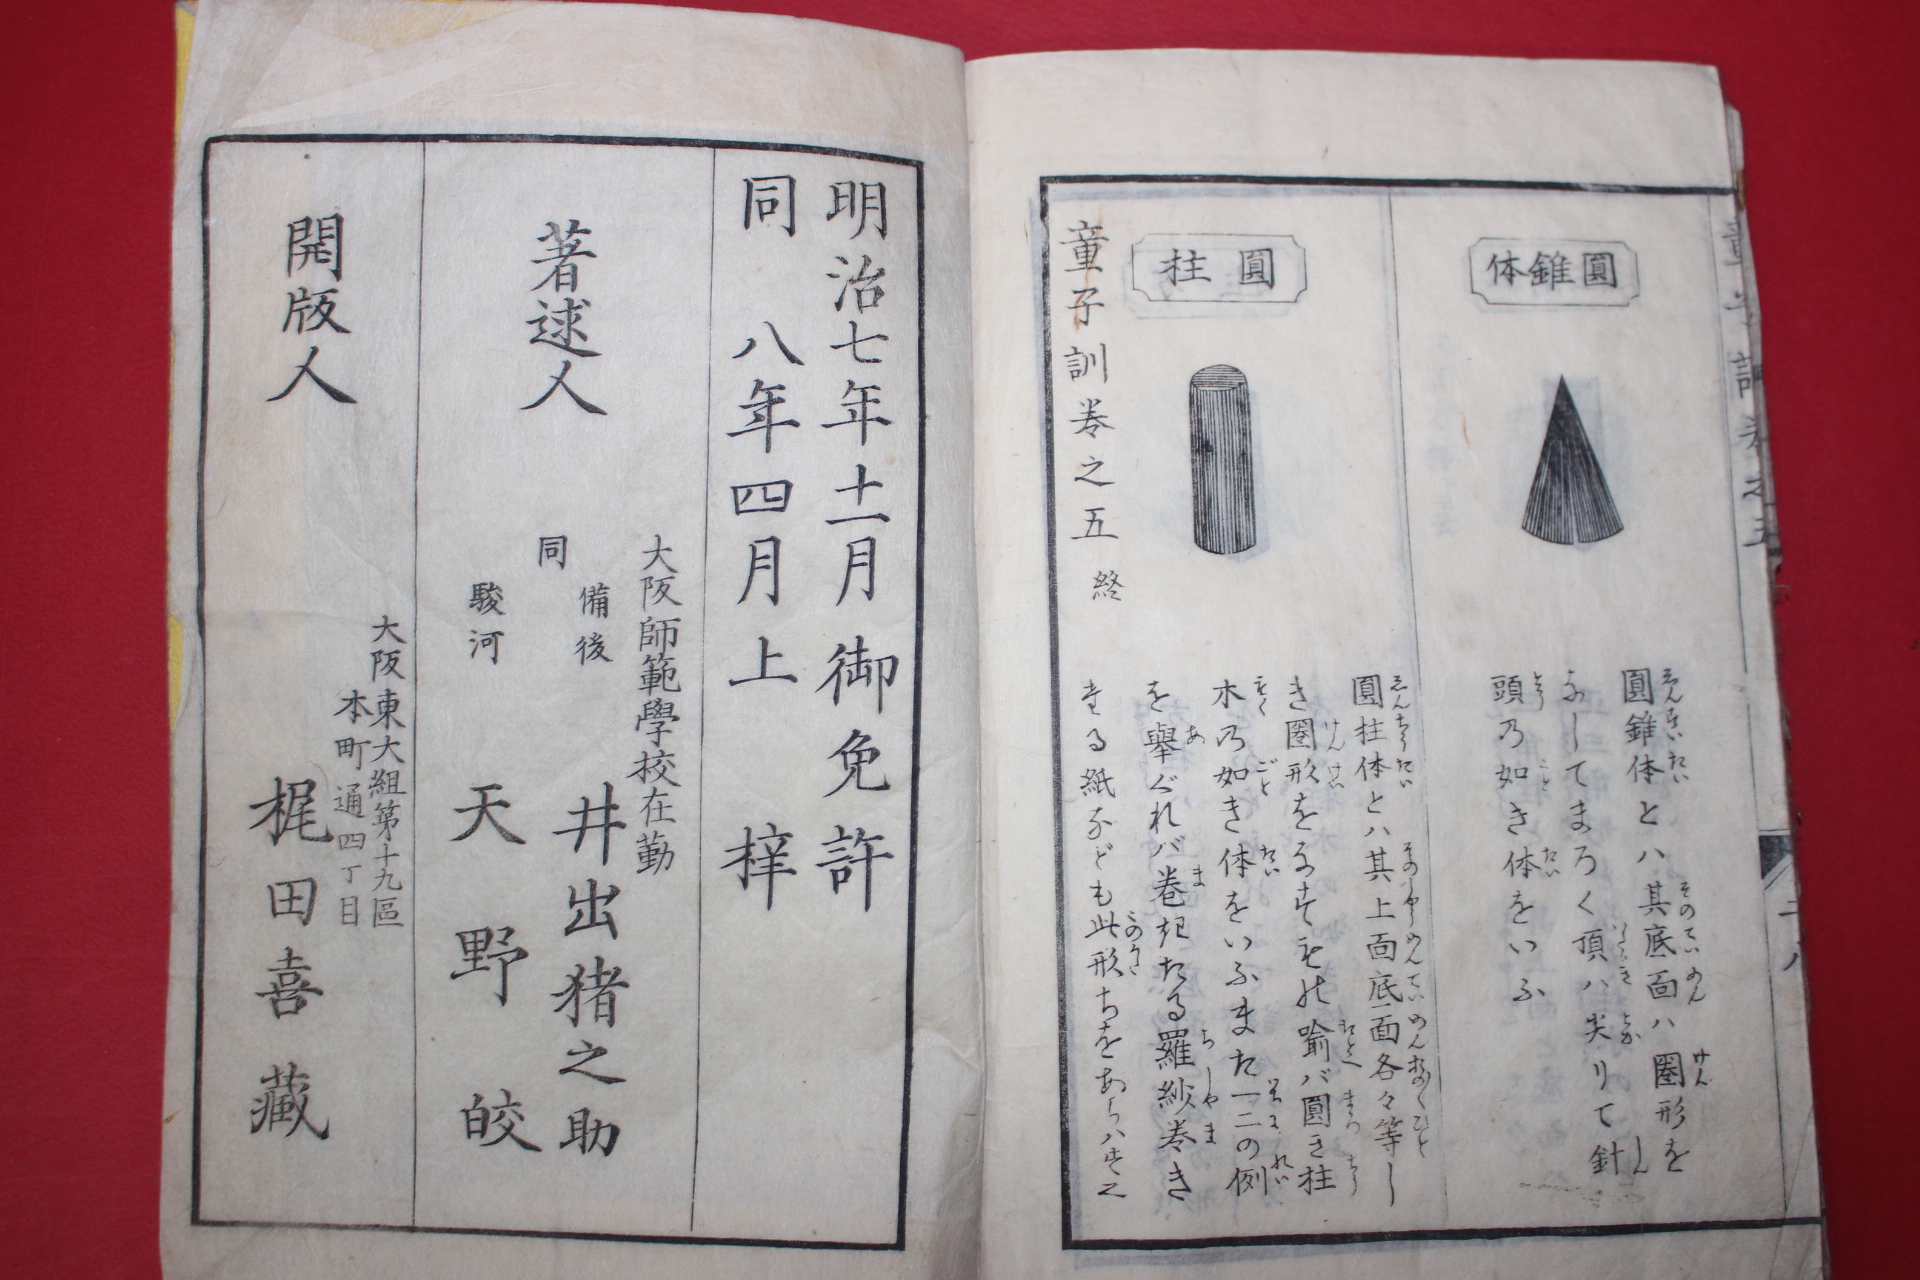 圓錐体
圓錐体とハ其底面ハ圏形を
なしてまろく頂ハ尖りて針
頭の如き体をいふ
圓柱
圓柱体とハ其上面底面各々等し
き圏形をなすもの喩バ圓き柱
木の如き体をいふまた一二の例
を擧ぐれバ巻きたる羅紗巻き
たる紙なども此形ちをあらハすに
童子訓巻之五 終
明治七年十一月御免許
同 八年四月上梓
大阪師範學校在勤
著述人
備後 井出猪之助
同
駿河 天野皎
大阪東大組第十九區
本町通四丁目
開版人 梶田喜藏